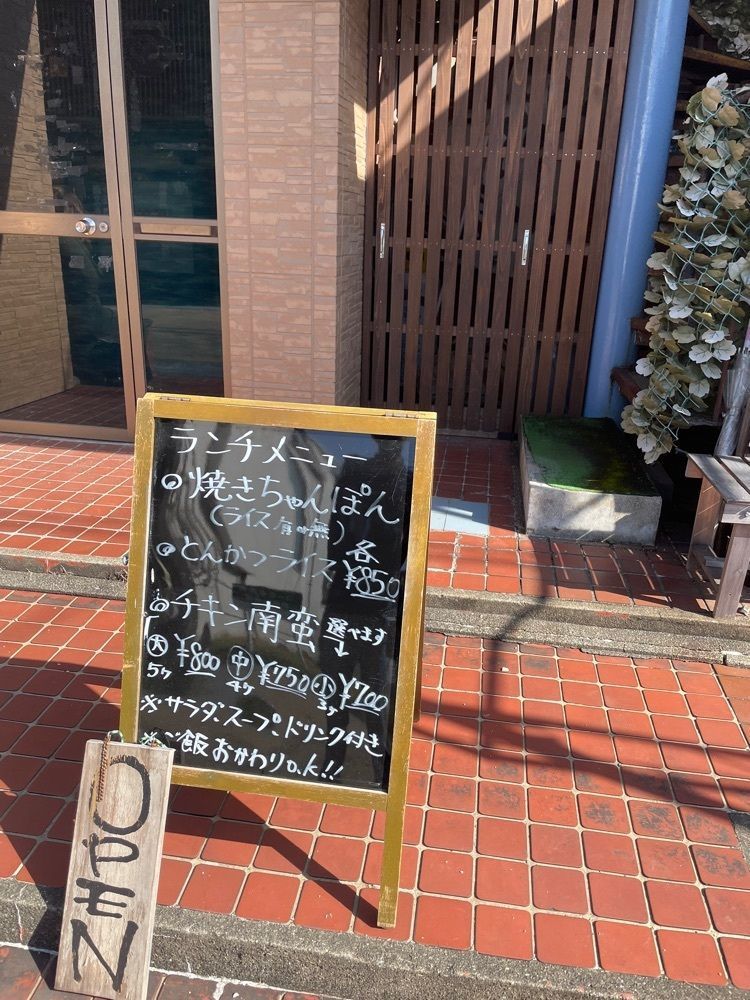 ランチメニュー
焼きちゃんぽん
(ライス有or無)
とんかつライス 各
¥850
チキン南蛮 選べます↓
大 ¥800 中 ¥750 小 ¥700
5ケ 4ケ 3ケ
※サラダ、スープ、ドリンク付き
※ご飯おかわりO.K!!
OPEN